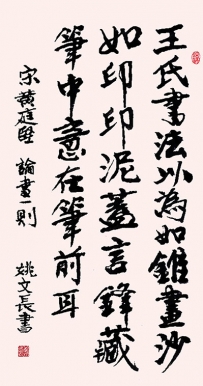 王氏書法以為如錐畫沙
如印印泥蓋言鋒藏
筆中意在筆前耳
宋黃庭堅 論書一則
姚文長書